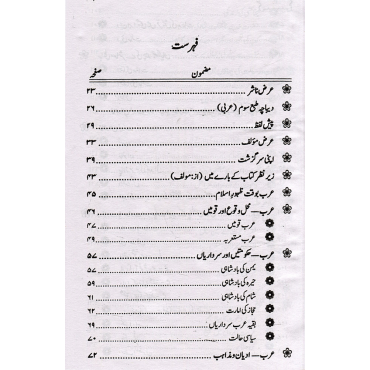 فہرست
مضمون صفحہ
عرض ناشر ۲۳
دیباچہ طبع سوم (عربی) ۲۶
پیش لفظ ۲۹
عرض مؤلف ۳۳
اپنی سرگزشت ۳۹
زیر نظر کتاب کے بارے میں (از: مولف) ۴۳
عرب بوقت ظہور اسلام ۴۵
عرب — محل وقوع اور قومیں ۴۶
عرب قومیں ۴۷
عرب مستعربہ ۴۹
عرب — حکومتیں اور سرداریاں ۵۷
یمن کی بادشاہی ۵۷
حیرہ کی بادشاہی ۵۹
شام کی بادشاہی ۶۱
حجاز کی امارت ۶۲
بقیہ عرب سرداریاں ۶۹
سیاسی حالت ۷۰
عرب — ادیان و مذاہب ۷۲